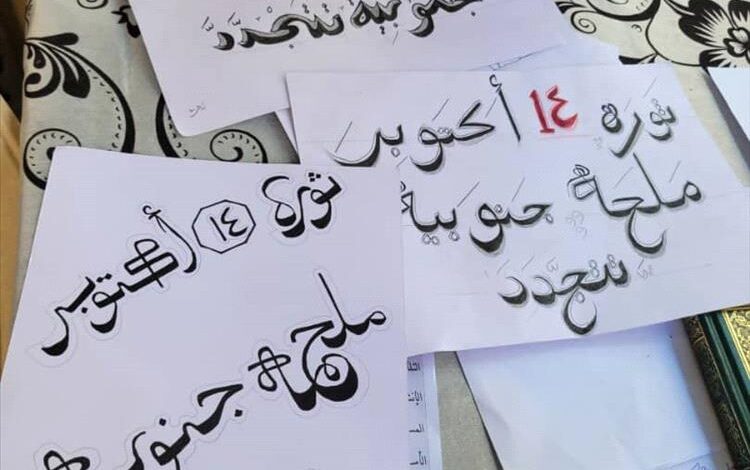 جنوبية تتجدد
ثورة ١٤ أكتوبر
ملحمة جنوبية
تتجدد
ثورة ١٤ أكتوبر
ملحمة